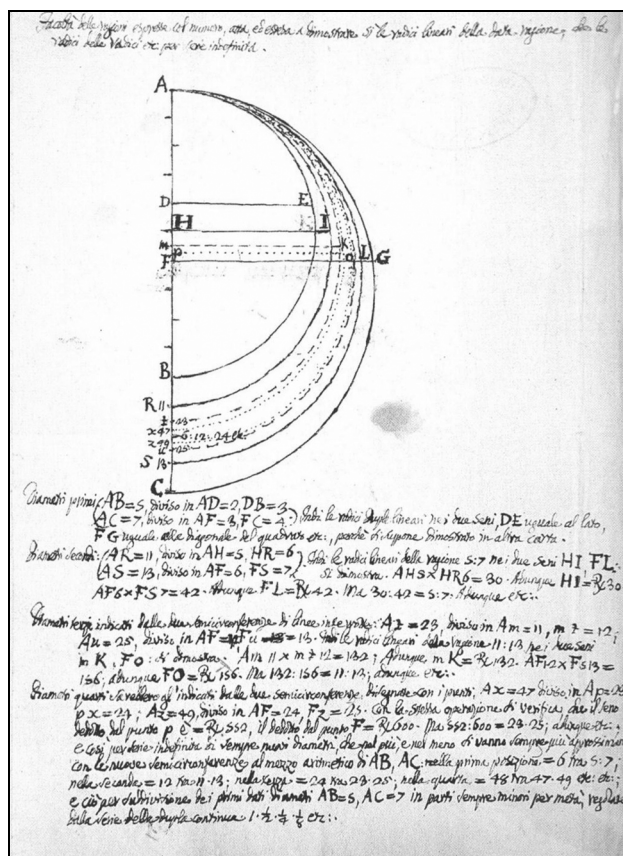 Facoltà delle ragioni espresse col numero, atta, ed estesa a dimostrare sì le radici lineari della data ragione, che le
radici delle radici etc. per serie indefinita.
A
D E
H I
m K
F p o L G
B
R 11
t 23
x 47
6. 12. 24 etc.
z 49
u 25
S 13
C
Diametri primi (AB=5, diviso in AD=2, DB=3
(AC=7, diviso in AF=3, FC=4.) Indi le radici duple lineari nei due seni, DE uguale al lato,
FG uguale alla diagonale del quadrato etc:, perché di ciò dimostrato in altra carta.
Diametri secondi: (AR=11, diviso in AH=5, HR=6) Indi le radici lineari della ragione 5:7 nei due seni HI, FL:
(AS=13, diviso in AF=6, FS=7.) Si dimostra. AH5 x HR6=30. dunque HI=℞30
AF6 x FS7=42. dunque FL=℞42. Ma 30:42=5:7. dunque etc:.
Diametri terzi indicati dalle due semicirconferenze di linee interrotte: Az=23, diviso in Am=11, mz=12;
Au=25, diviso in AF=12 Fu=13. Indi le radici lineari della ragione 11:13 nei due seni
m K, FO: si dimostra. Am 11 x mz=12=132; dunque mK=℞132. AF12 x FS13=
156; dunque FO=℞156. Ma 132:156=11:13; dunque etc:.
Diametri quarti sarebbero gl'indicati dalle due semicirconferenze disegnate con i punti, Ax=47 diviso in Ap=23
px=24; Az=49, diviso in AF=24 Fz=25. Con la stessa operazione di verifica che il seno
dedotto dal punto p è=℞552, il dedotto dal punto F=℞600. Ma 552:600=23:25; dunque etc:.
e così per serie indefinita di sempre nuovi diametri, che nel più, e nel meno si vanno sempre più approssimando
con le nuove semicirconferenze al mezzo aritmetico di AB, AC: nella prima posizione=6 tra 5:7;
nella seconda=12 tra 11·13; nella terza=24 tra 23·25; nella quarta=48 tra 47·49 etc etc:;
e ciò per suddivisione dei primi dati diametri AB=5, AC=7 in parti sempre minori per metà, regolate
dalla serie della dupla continua 1·½·¼·⅛ etc:.